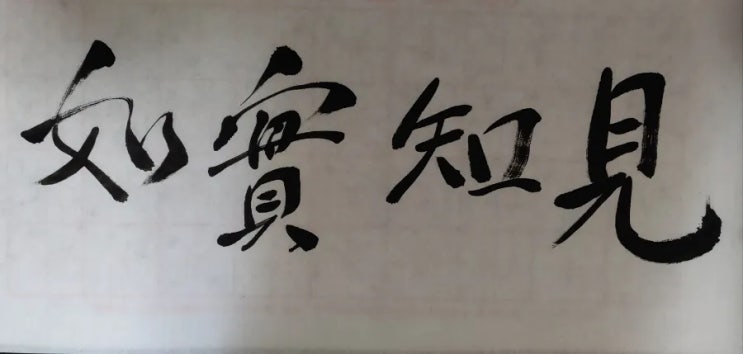 如實知見